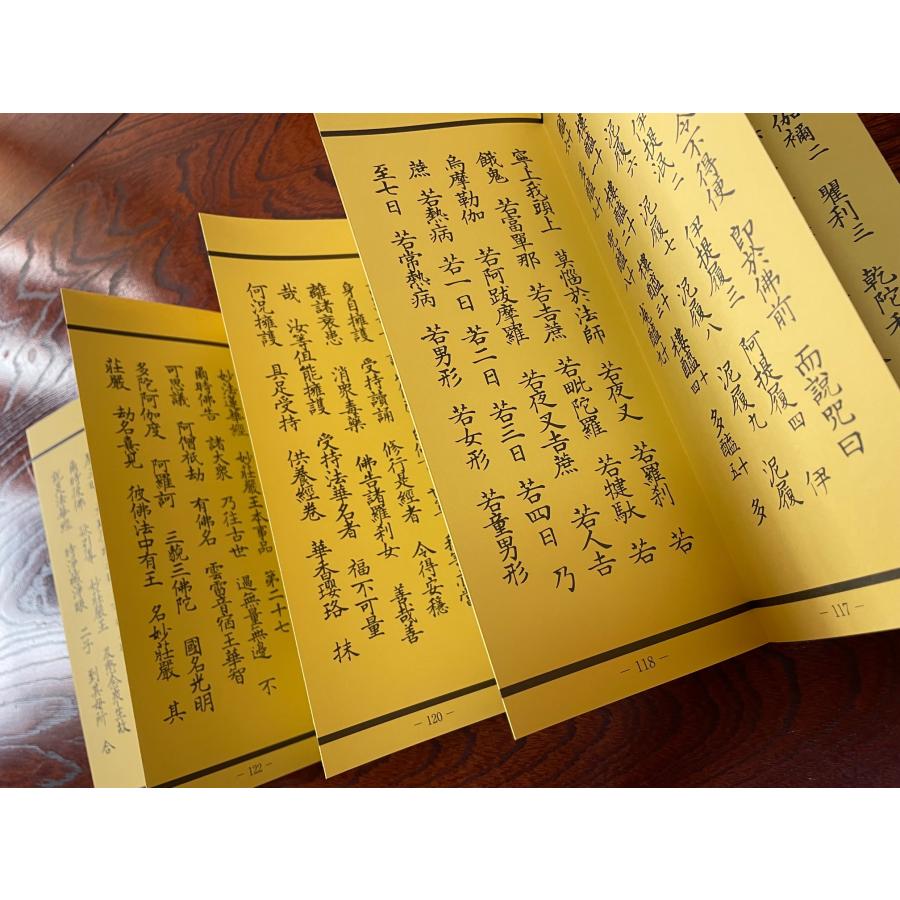 伽禰二 瞿利三 乾陀
令不得便 即於佛前 而說咒曰
伊提泯二 伊提履三 阿提履四 伊
泥履六 泥履七 泥履八 泥履九 泥履
樓醯二十 樓醯三十 樓醯四十 多
多醯五十
－117－
寧上我頭上 莫惱於法師 若夜叉 若羅刹 若
餓鬼 若富單那 若吉蔗 若毗陀羅 若犍馱 若
烏摩勒伽 若阿跋摩羅 若夜叉吉蔗 若人吉
蔗 若熱病 若一日 若二日 若三日 若四日 乃
至七日 若常熱病 若男形 若女形 若童男形
－118－
身自擁護 受持讀誦 修行是經者 令得安穩
離諸衰患 消衆毒藥 佛告諸羅刹女 善哉善
哉 汝等但能擁護 受持法華名者 福不可量
何況擁護 具足受持 供養經卷 華香瓔珞 抹
－120－
妙法蓮華經 妙莊嚴王本事品 第二十七
爾時佛告 諸大衆 乃往古世 過無量無邊 不
可思議 阿僧祇劫 有佛名 雲雷音宿王華智
多陀阿伽度 阿羅訶 三藐三佛陀 國名光明
莊嚴 劫名憙見 彼佛法中有王 名妙莊嚴 其
－122－
爾時彼佛 欲引導 妙莊嚴王 及愍念衆生故
說是法華經 時淨藏淨眼 二子 到其母所 合